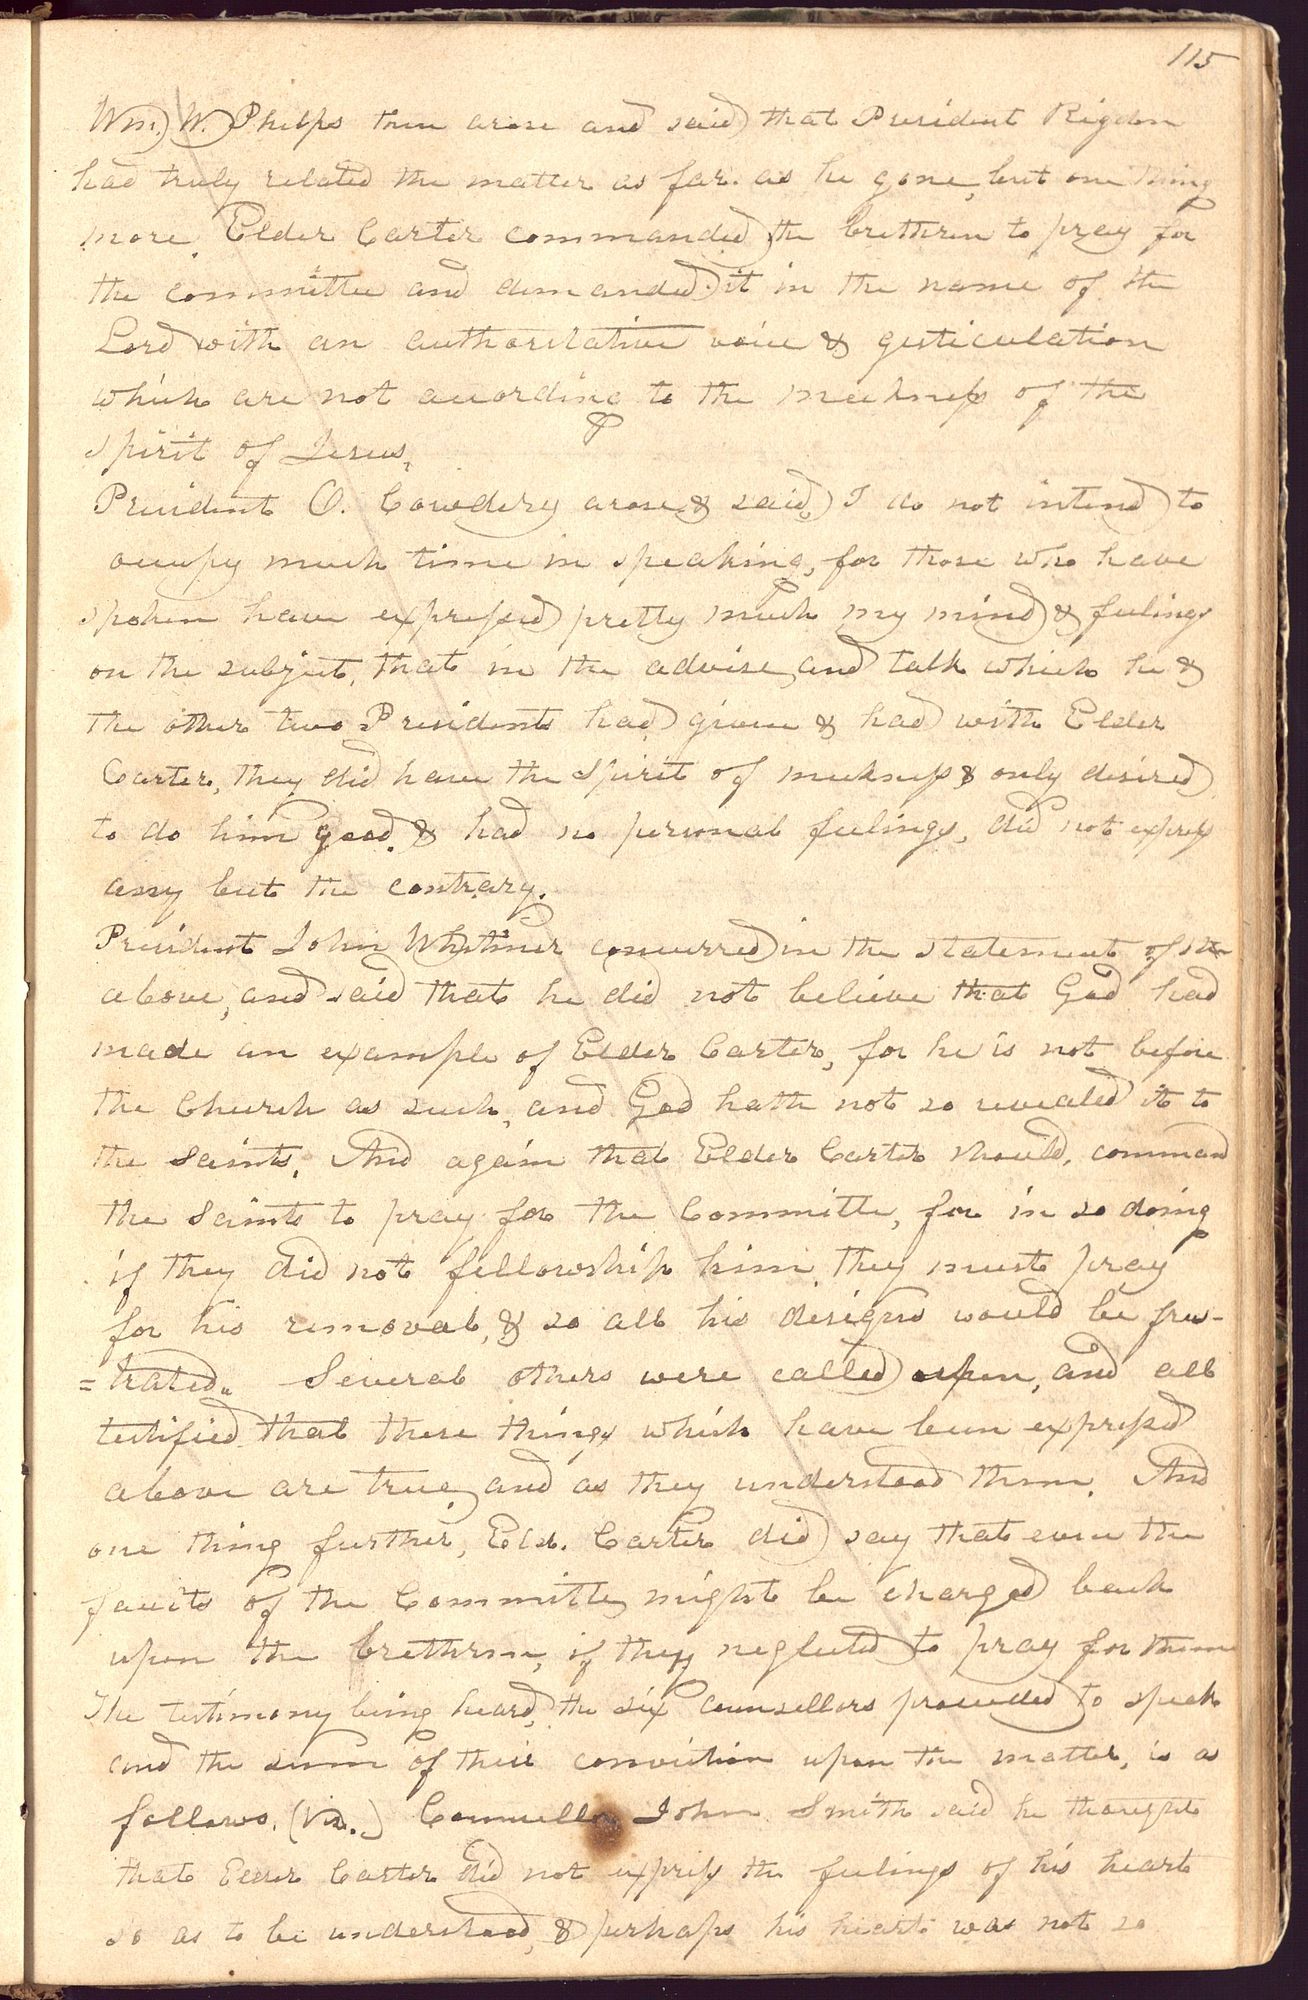 115
Wm. W. Phelps then arose and said that President Rigdon
had truly related the matter as far as he gone, but one thing
more Elder Carter commanded the brethren to pray for
the committee and demanded it in the name of the
Lord with an authoritative voice & gesticulation
which are not according to the meekness of the
spirit of Jesus.
President O. Cowdery arose & said, I do not intend to
occupy much time in speaking, for those who have
spoken have expressed pretty much my mind & feelings
on the subject, that in the advise and talk which he &
the other two Presidents had given & had with Elder
Carter, they did have the spirit of meekness & only desired
to do him good, & had no personal feelings, did not express
any but the contrary.
President John Whitmer concurred in the statement of the
above, and said that he did not believe that God had
made an example of Elder Carter, for he is not before
the Church as such, and God hath not so revealed it to
the Saints. And again that Elder Carter should, command
the Saints to pray for the Committee, for in so doing
if they did not fellowship him they must pray
for his removal, & so all his designs would be frus-
=trated. Several others were called upon, and all
testified that these things which have been expressed
above are true, and as they understood them. And
one thing further, Eld. Carter did say that even the
faults of the Committee might be charged back
upon the brethren, if they neglected to pray for them
The testimony being heard, the six counsellors proceeded to speak
and the sum of their conviction upon the matter, is as
follows. (viz.) Counsellor John Smith said he thought
that Elder Carter did not express the feelings of his heart
so as to be understood, & perhaps his heart was not so